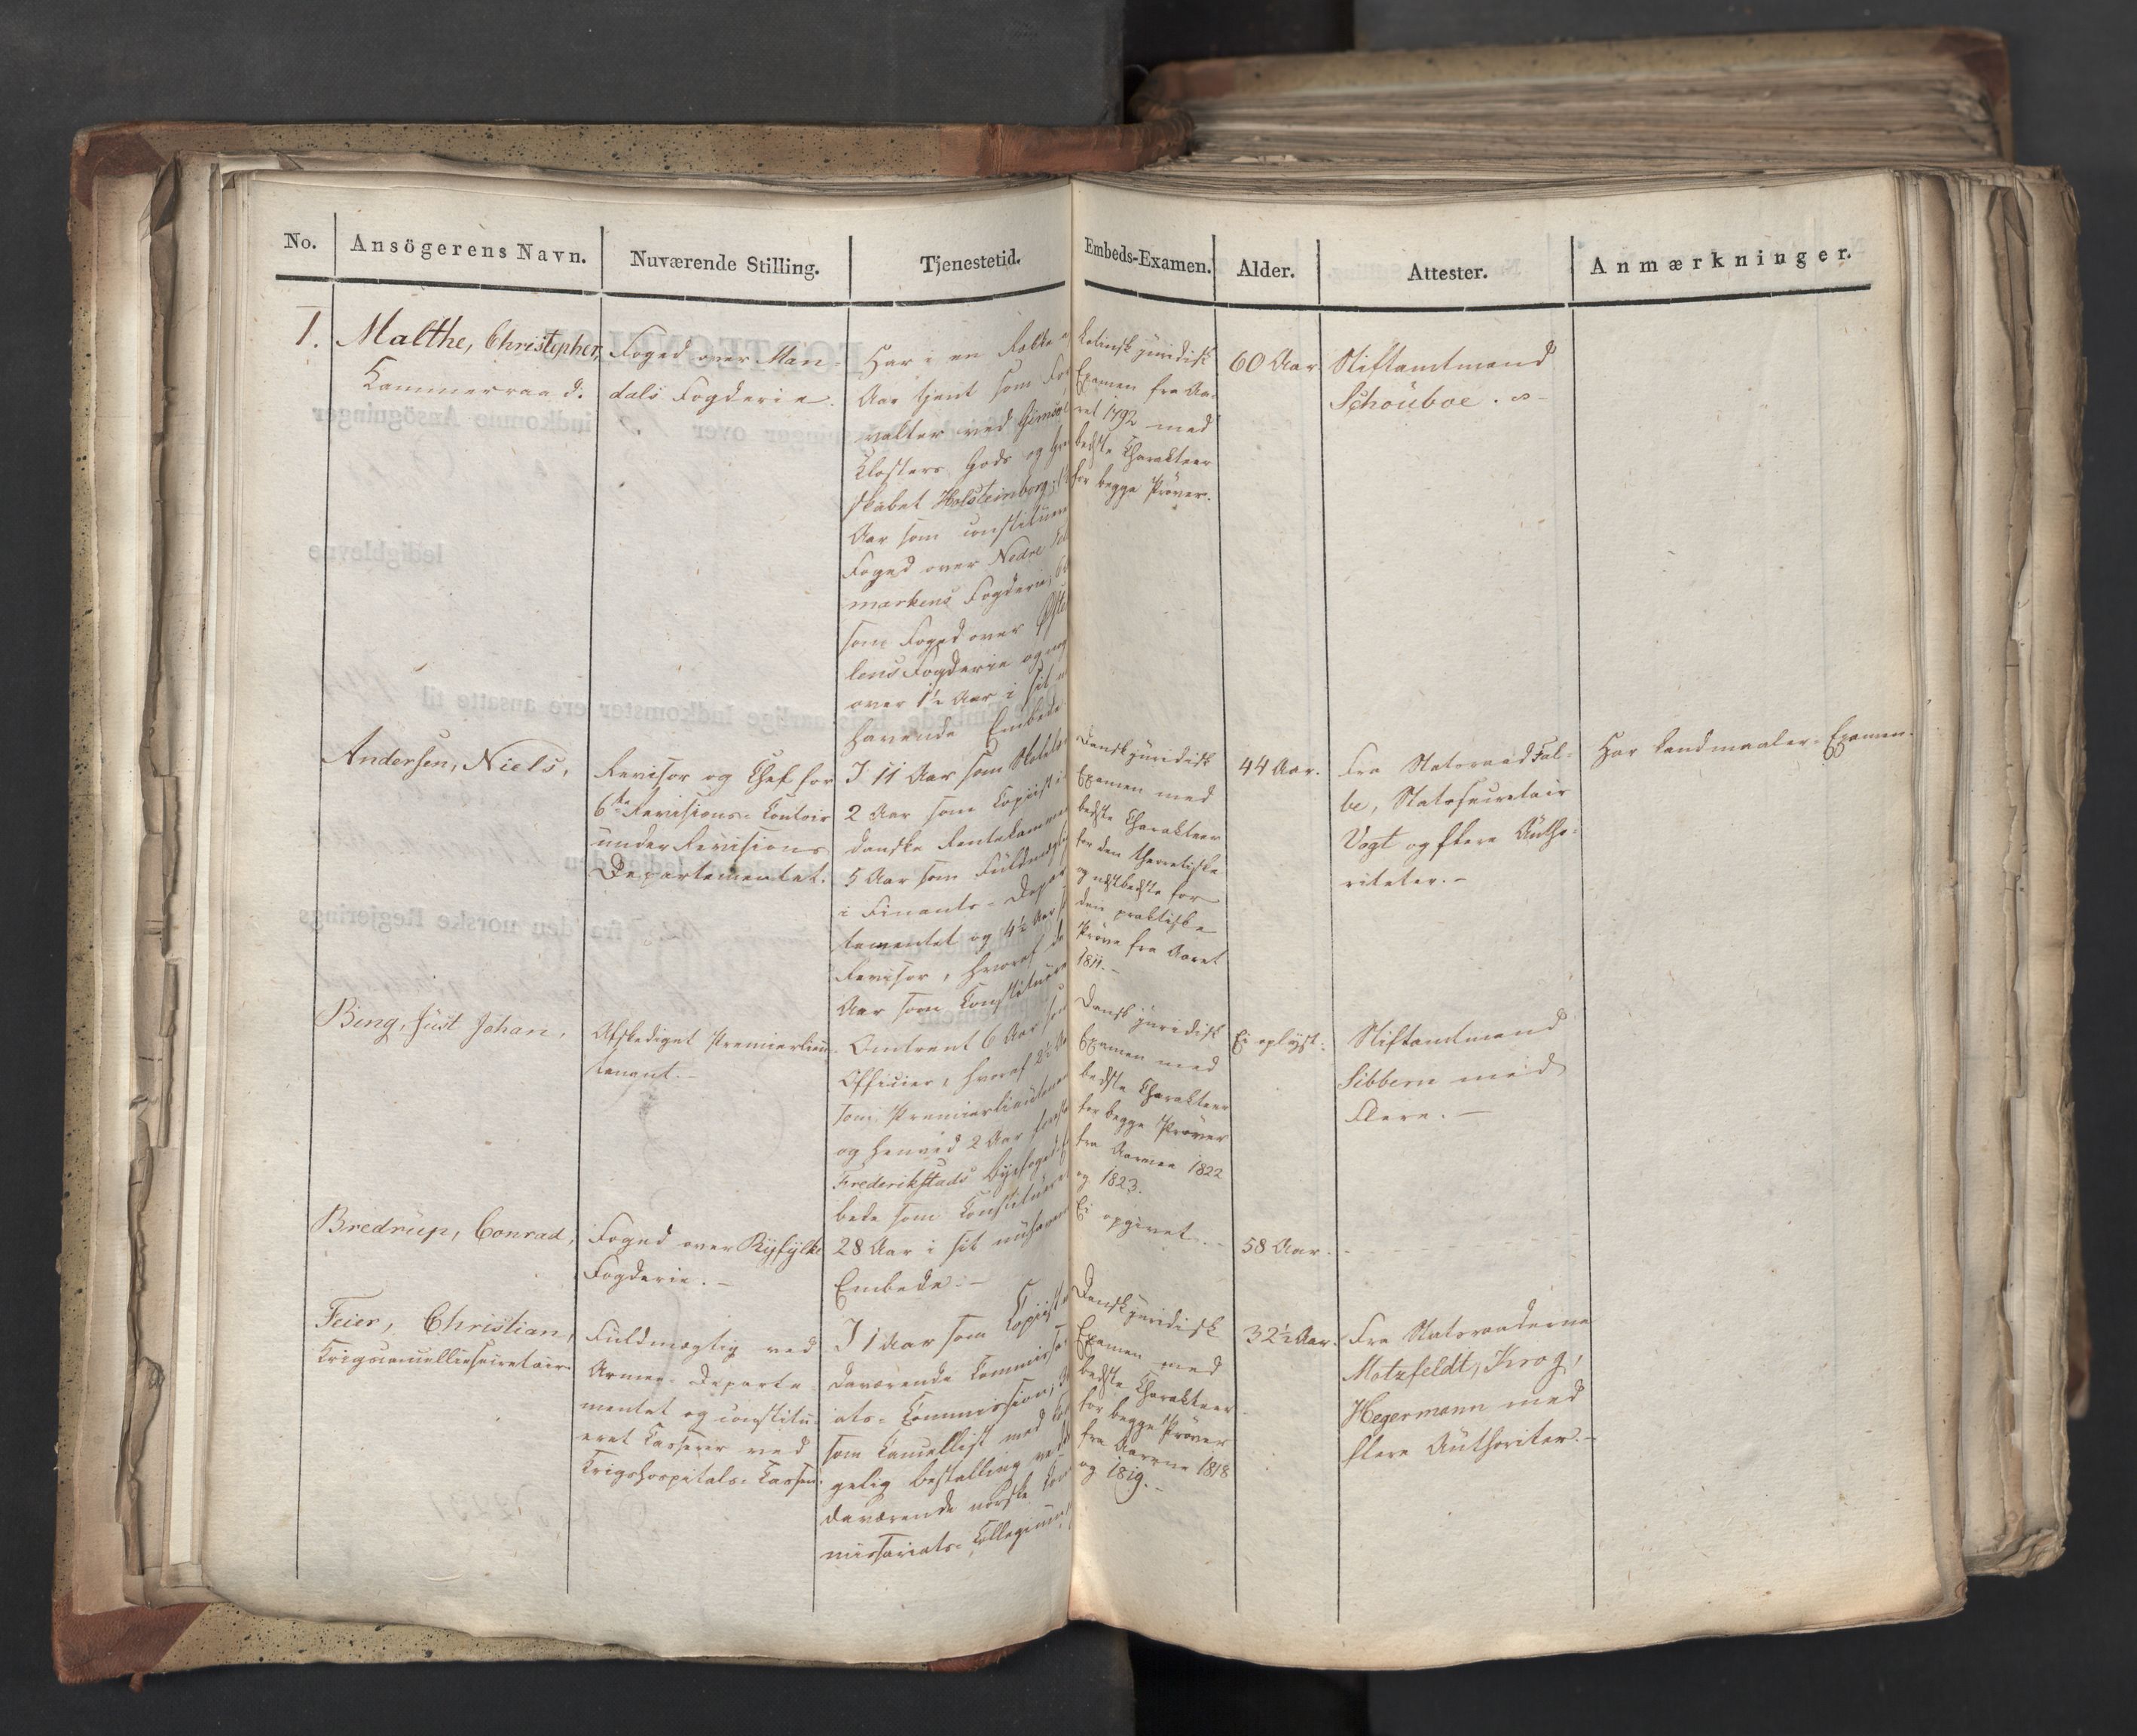 No.
Ansögerens Navn.
Nuværende Stilling.
Tjenestetid.
Embeds-Examen.
Alder.
Attester.
Anmærkninger.
1.
Malthe, Christopher,
Kammerraad.
Foged over Man-
dals Fogderie.
Har i en Række a
Aar tjent som For
valter ved Gimsø
Klosters Gods og Gre
skabet Holsteinborg,
Aar som constitueret
Foged over Nedre Tel
markens Fogderie, 6
som Foged over Øste
lens Fogderie og nog
over 1½ Aar i sit n
havende Embede.
Latinsk juridisk
Examen fra Aa-
ret 1792 med
bedste Charakteer
for begge Prøver.
60 Aar.
Stiftamtmand
Schouboe.
Andersen, Niels,
Revisor og Chef for
6te Revisions-Contoir
under Revisions
Departementet.
I 11 Aar som
2 Aar som Copiist i
danske Rentekammer
5 Aar som Fuldmægtig
i Finants-Depar
tementet og 4½ Aar s
Revisor, hvoraf
Aar som Constitueret
Dansk juridisk
Examen med
bedste Charakteer
for den theoretiske
og næstbedste for
den praktiske
Prøve fra Aaret
1811.-
44 Aar.
Fra Statsraad Fal-
be, Statssecretair
Vogt og flere Autho-
riteter.-
Har Landmaaler-Examen.
Bing, Just Johan,
Afskediget Premierlieu-
tenant.-
Omtrent 6 Aar som
Officier, hvoraf 2½ A
som Premierlieutenant
og henved 2 Aar
Frederikstads Byefoged-
bede som Constitueret
Dansk juridisk
Examen med
bedste Charakteer
for begge Prøver
fra Aarene 1822
og 1823.
Ei oplyst.
Stiftamtmand
Sibbern med
Flere.-
Bredrup, Conrad,
Foged over Ryfylke
Fogderie.-
28 Aar i sit nuhavend
Embede.-
Ei opgivet.-
58 Aar.
Feier, Christian,
Krigscancelliesecretair.
Fuldmægtig ved
Armee-Departe
mentet og constitu-
eret Casserer ved
Krigshospitals-Cassen.
I 1 Aar som Copiist
daværende Commissari
ats-Commission, 3
som Cancellist med Kon
gelig Bestalling ved
daværende norske Com
missariats-Collegium,
Dansk juridisk
Examen med
bedste Charakteer
for begge Prøver
fra Aarene 1818
og 1819.-
32½ Aar.
Fra Statsraaderne
Motzfeldt, Krog,
Hegermann med
flere Authoriter.-